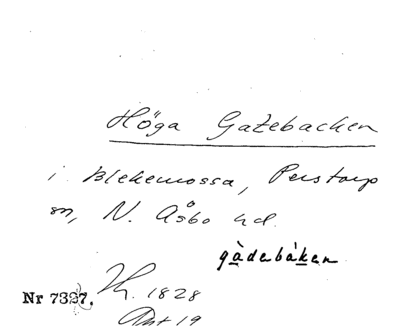 Höga Gatebacken
i Blekemossa, Perstorp
sn, N. Åsbo hd.
gàdebàken
Nr 7327. Th. 1828
Ant 19